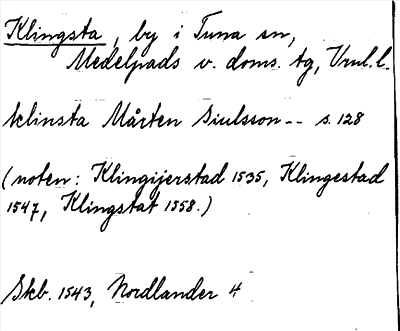 Klingsta, by i Tuna sn,
Medelpads v. doms. tg, Vnl. l.
klinsta Mårten Siulsson -- s. 128
(noten: Klingijerstad 1535, Klingestad
1547, Klingstat 1558.)
Skb. 1543, Nordlander 4